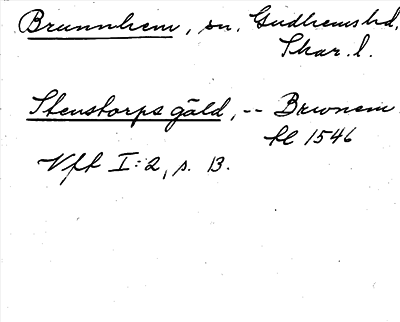 Brunnhem, sn, Gudhems hd,
Skar. l.
Stenstorps gäld, -- Brwnem
tl 1546
Vft I:2, s. 13.